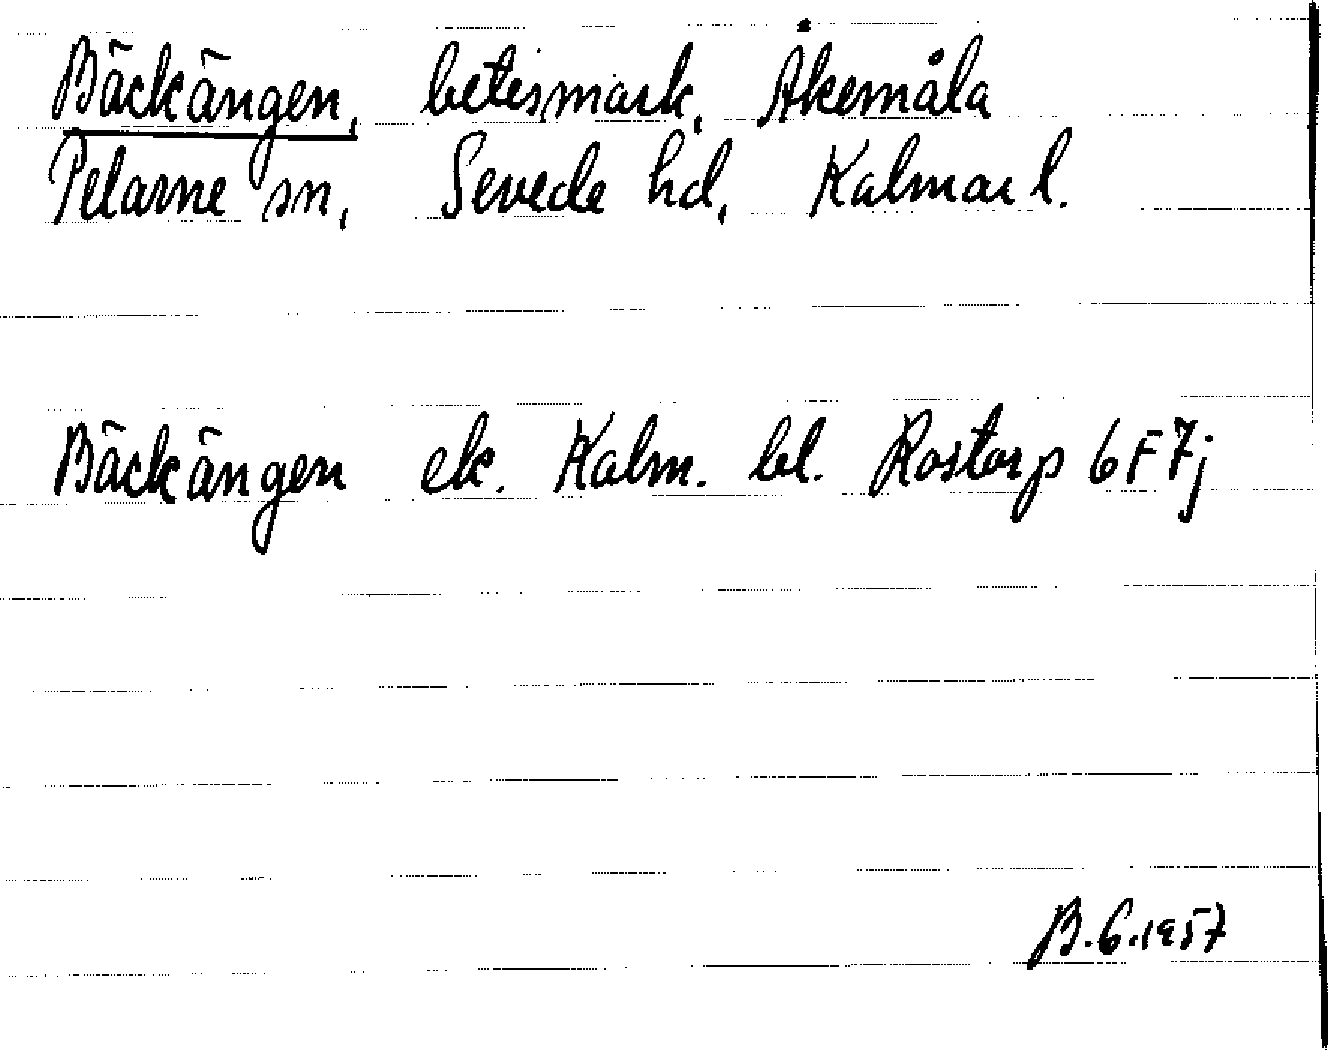 Bäckängen, betesmark, Åkemåla
Pelarne sn, Sevede hd, Kalmar l.
Bäckängen ek. Kalm. bl. Rostorp 6F7j
B.G.1957